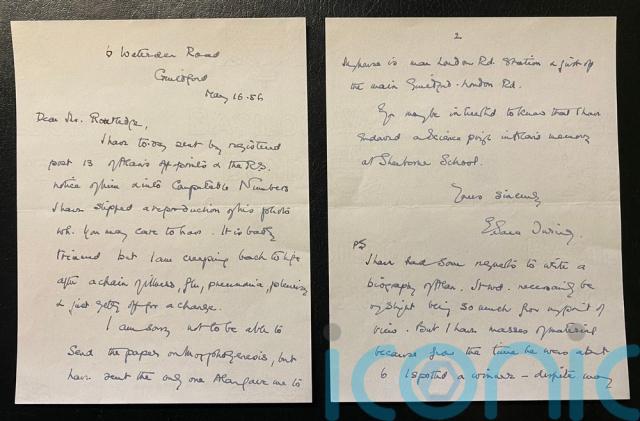 6 Waterden Road
Guildford
May 16. 56
Dear Mr. Routledge,
I have today sent by registered
post 13 of Alan's offprints & the R.S.
notice of him & into Computable Numbers
I have slipped a reproduction of his photo
wh. you may care to have. It is badly
trimmed but I am creeping back to life
after a chain of illness, flu, pneumonia, pleurisy
& just getting off for a change.
I am sorry not to be able to
send the paper on Morphogenesis, but
have sent the only one Alan gave me to
2
house is near London Rd. Station & just off
the main Guildford-London Rd.
You may be interested to know that I have
endowed a Science prize in Alan's memory
at Sherborne School.
Yours sincerely
E. Sara Turing.
PS
I have had some requests to write a
biography of Alan. It wd. necessarily be
slight being so much from my point of
view. But I have masses of material
because from the time he was about
6 I spotted a winner – despite many
iconic